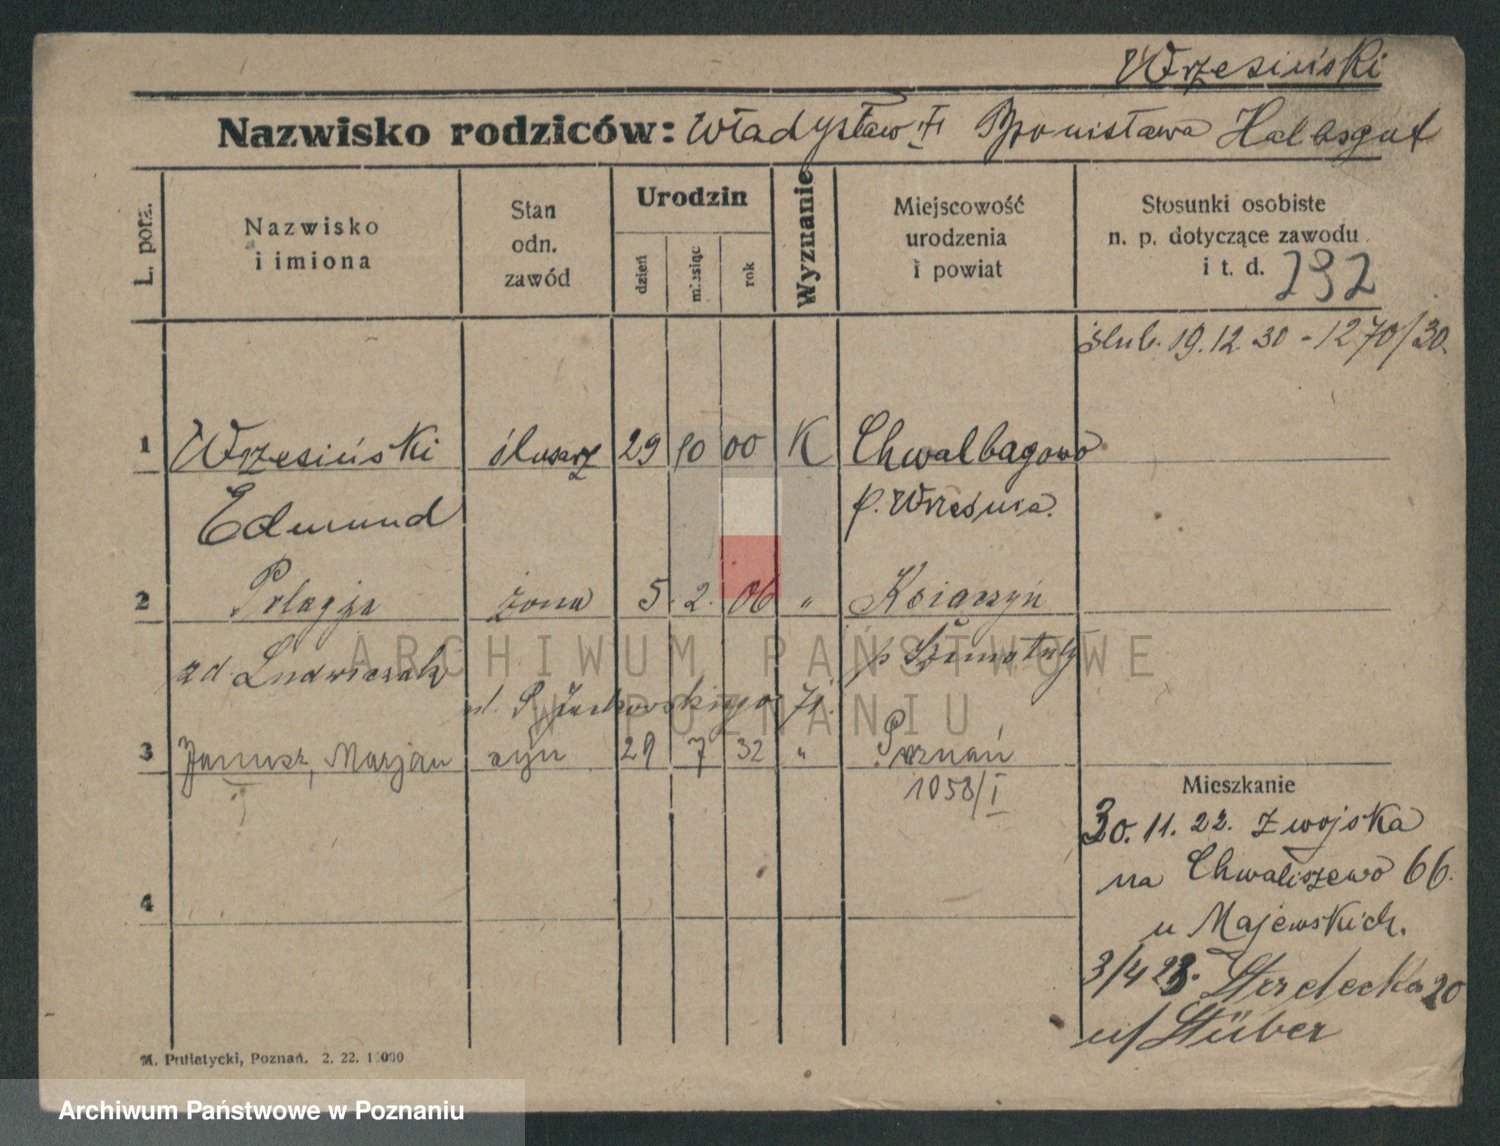 Wrzesiński
Nazwisko rodziców: Władysław Bronisława Halbsgut
L. porz.
Nazwisko i imiona
Stan odn. zawód
Urodzin
dzień miesiąc rok
Wyznanie
Miejscowość urodzenia i powiat
Stosunki osobiste n. p. dotyczące zawodu i t. d. 292
ślub. 19.12.30 - 1270/30.
1 Wrzesiński ślusarz 29 10 00 K Chwalbogowo
Edmund p. Września.
2 Pelagja żona 5. 2. 06 " Ksiaczyn
zd Ludwiczak p Szamotuły
ul. 71.
3 Janusz, Marjan syn 29 7 32 " Poznań
1058/I
Mieszkanie
30. 11. 22. z wojska
na Chwaliszewo 66.
u Majewskich.
4
3/4 23. Strzelecka 20
u/ Stüber
M. Putiatycki, Poznań. 2. 22. 10000
ARCHIWUM PAŃSTWOWE
W POZNANIU
Archiwum Państwowe w Poznaniu